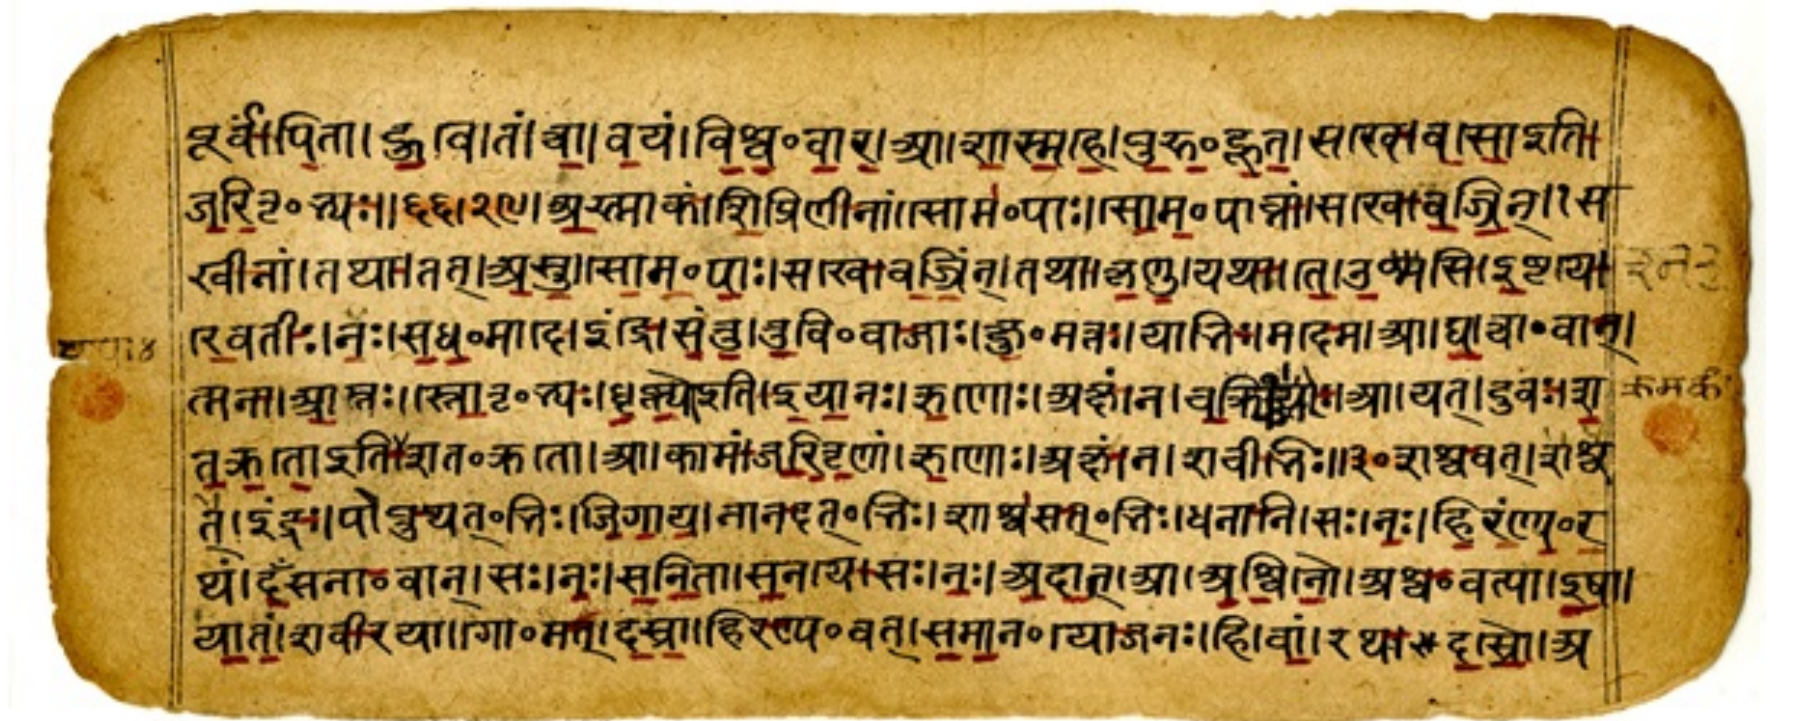 पूर्वं। पिता। हुवे। तं। त्वा। वयं। विश्व॰वार। आ। शास्महे। पुरु॰हूत। सखे। वसो इति।
जरितृ॰भ्यः॥ ६६। २९। अस्माकं। शिप्रिणीनां। सोम॰पाः। सोम॰पाव्नां। सखे। वज्रिन्। स
खीनां। तथा। तत्। अस्तु। सोम॰पाः। सखे। वज्रिन्। तथा। कृणु। यथा। ते। उश्मसि। इष्टये।
रेवतीः। नः। सध॰मादे। इंद्रे। संतु। तुवि॰वाजाः। क्षु॰मंतः। याभिः। मदेम। आ। घ। त्वा॰वान्।
त्मना। आप्तः। स्तोतृ॰भ्यः। धृष्णो इति। इयानः। ऋणोः। अक्षं। न। चक्र्योः। आ। यत्। दुवः। श
तक्रतो इति शत॰क्रतो। आ। कामं। जरितॄणां। ऋणोः। अक्षं। न। शचीभिः॥ ३॰ शश्वत्। शश्व
त्। इंद्रः। पोप्रुथत्॰भिः। जिगाय। नानदत्॰भिः। शाश्वसत्॰भिः। धनानि। सः। नः। हिरण्य॰र
थं। दंसना॰वान्। सः। नः। सनिता। सनये। सः। नः। अदात्। आ। अश्विनौ। अश्व॰वत्या। इषा।
यातं। शवीरया। गो॰मत्। दस्रा। हिरण्य॰वत्। समान॰योजनः। हि। वां। रथः। दस्रौ। अ